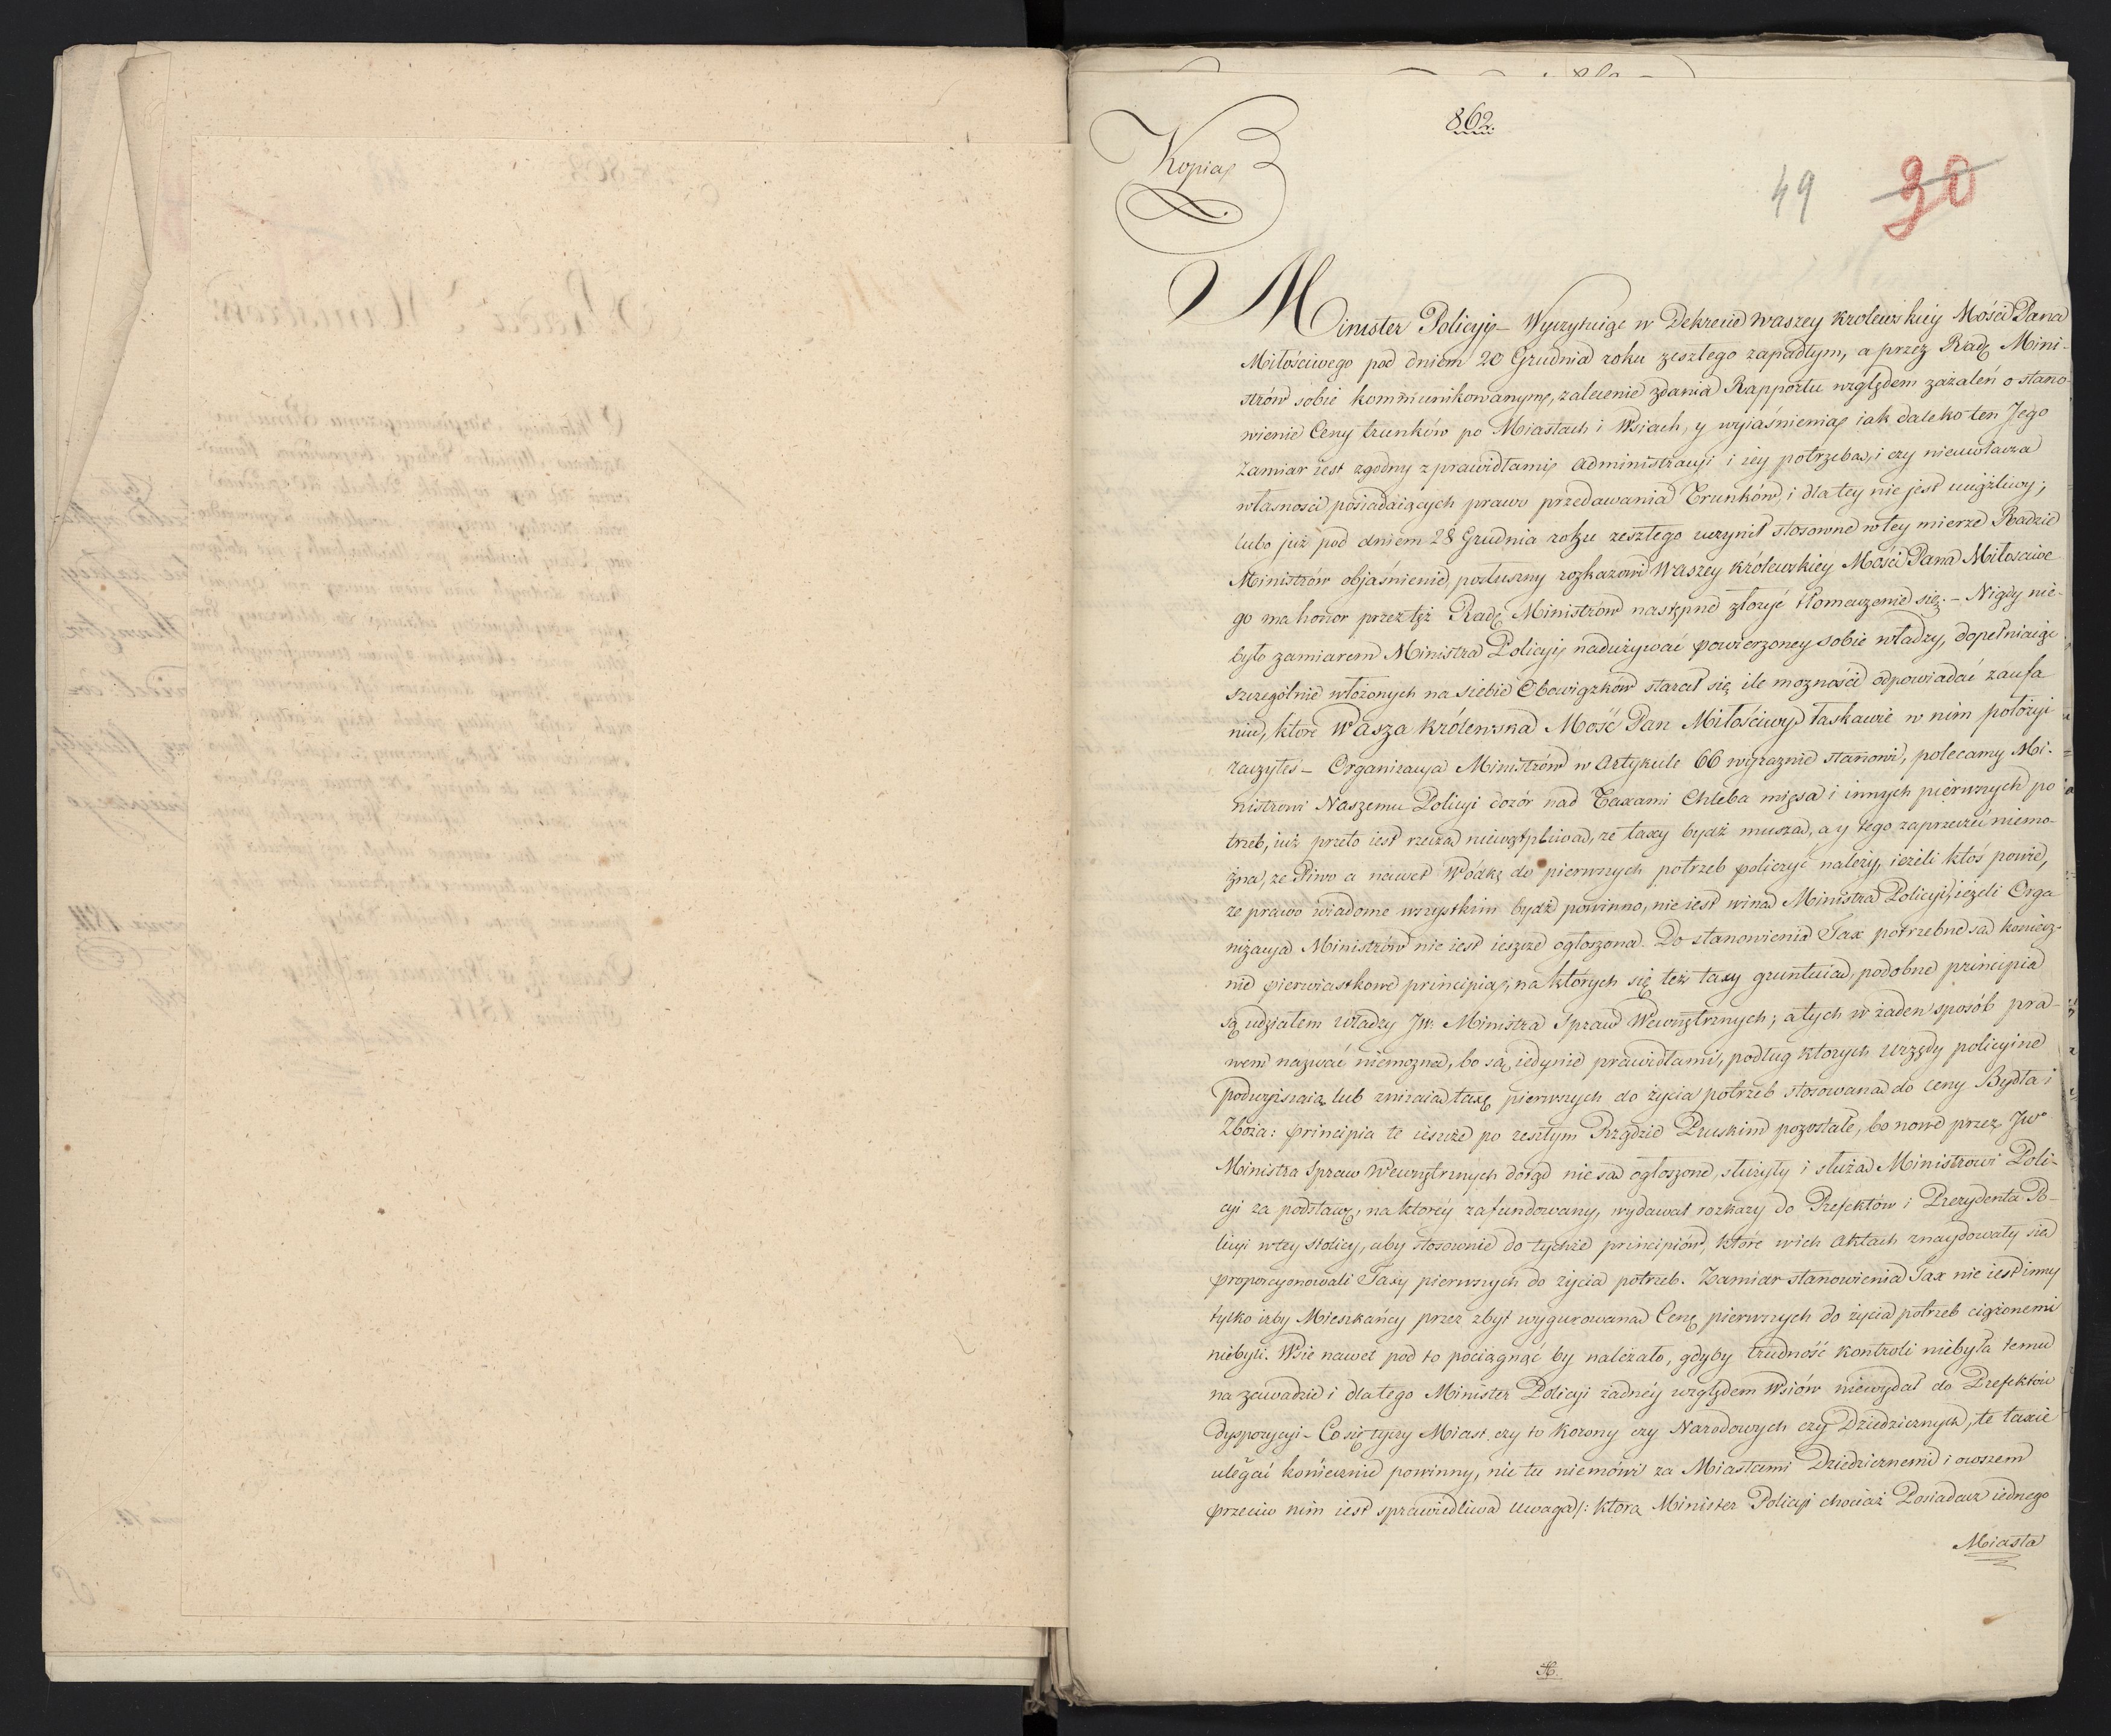 862.
Kopia
49 30
Minister Policyi – Wyczytuiąc w Dekrecie Waszey Krolewskiey Mości Pana
Miłościwego pod dniem 20 Grudnia roku zeszłego zapadłym, a przez Radę Mini-
strów sobie kommunikowanym, zalecenie zdania Rapportu względem zażaleń o stano-
wienie Ceny trunków po Miastach i Wsiach, y wyiaśnienia iak daleko ten Jego
zamiar iest zgodny z prawidłami Administracyi i iey potrzeba, i czy nieuwłacza
własności posiadaiących prawo przedawania Trunków, i dla tey nie jest uciążliwy;
lubo już pod dniem 28 Grudnia roku zeszłego uczynił stosowne w tey mierze Radzie
Ministrów objaśnienie, posłuszny rozkazowi Waszey Królewskiey Mości Pana Miłosciwe-
go ma honor przez tęż Radę Ministrów następne złożyć tłomaczenie się. – Nigdy nie-
było zamiarem Ministra Policyi nadużywać powierzoney sobie władzy, dopełniaiąc
szczególnie włożonych na siebie Obowiązków starał się ile mozności odpowiadać zaufa
niu, które Wasza Królewska Mość Pan Miłościwy łaskawie w nim położyć
raczyłeś – Organizacya Ministrów w Artykule 66 wyraznie stanowi, polecamy Mi-
nistrowi Naszemu Policyi dozór nad Taxami Chleba mięsa i innych pierwszych po
trzeb, iuż przeto iest rzeczą niewątpliwą, że taxy bydź muszą, a y tego zaprzeczyć niemo-
żna, ze Piwo a nawet Wódkę do pierwszych potrzeb policzyć należy, ieżeli ktoś powie,
ze prawo wiadome wszystkim bydź powinno, nie iest winą Ministra Policyi, ieżeli Orga
nizacya Ministrów nie iest ieszcze ogłoszona. Do stanowienia Tax potrzebne są koniecz-
nie pierwiastkowe principia, na których się też taxy gruntuią, podobne principia
są udziałem władzy JW. Ministra Spraw Wewnętrznych; a tych w żaden sposób pra-
wem nazwać niemozna, bo są iedynie prawidłami, podług ktorych Urzędy policyine
podwyższaią lub zniżaią taxę pierwszych do życia potrzeb stosowaną do ceny Bydła i
Zboża: principia te ieszcze po zeszłym Rządzie Pruskim pozostałe, bo nowe przez JWo
Ministra Spraw Wewnętrznych dotąd nie są ogłoszone, służyły i służą Ministrowi Poli-
cyi za podstawę, na którey zafundowany, wydawał rozkazy do Prefektów i Prezydenta Po-
licyi w tey Stolicy, aby stosownie do tychże principiów, które w ich Aktach znaydowały się
proporcyonowali Taxy pierwszych do życia potrzeb. Zamiar stanowienia Tax nie iest inny
tylko iżby Mieszkańcy przez zbyt wygurowaną Cenę pierwszych do życia potrzeb ciążonemi
niebyli. Wsie nawet pod to pociągnąć by należało, gdyby trudność kontroli niebyła temu
na zawadzie i dla tego Minister Policyi żadnéy względem Wsiów niewydał do Prefektów
dyspozycyi – Co się tyczy Miast, czy to Korony czy Narodowych czy Dziedzicznych, te taxie
ulegać koniecznie powinny, nic tu niemówi za Miastami Dziedzicznemi i owszem
przeciw nim iest sprawiedliwa uwaga /: którą Minister Policyi chociaż Posiadacz iednego
Miasta